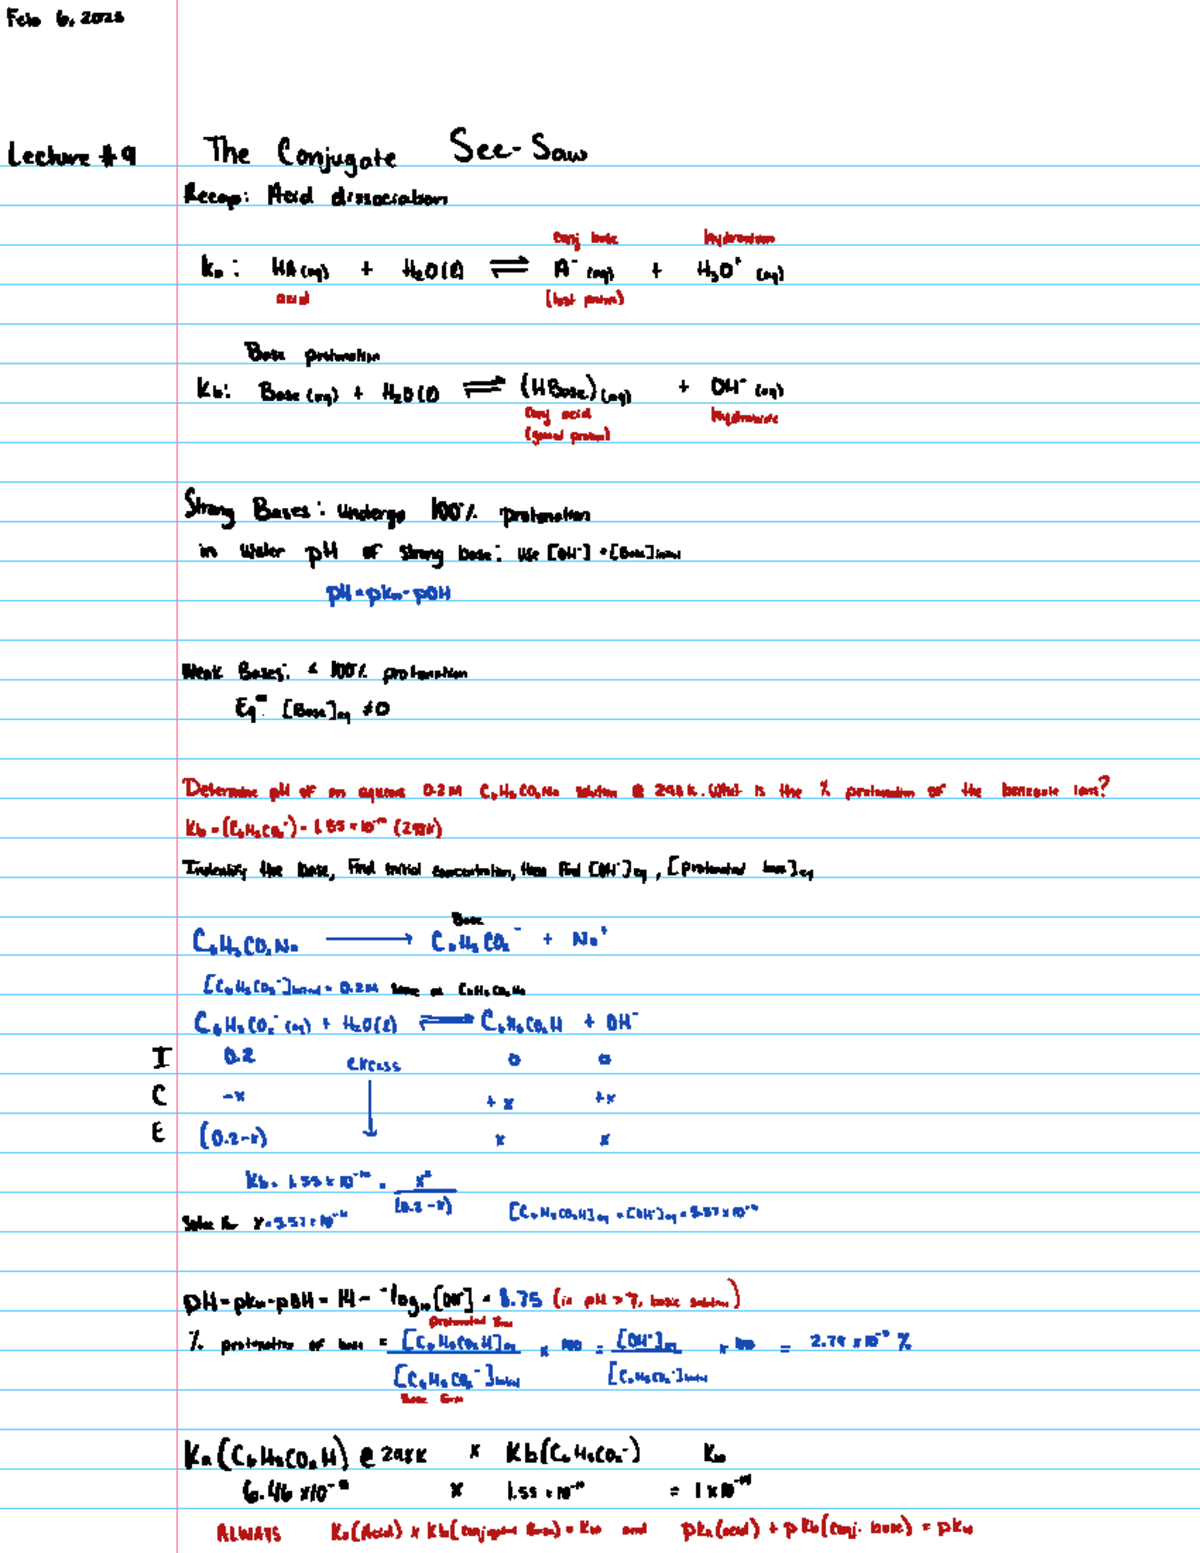 Feb 6, 2025
Lecture #9 The Conjugate See-Saw
Recap: Acid dissociation
conj base hydronium
Ka: HA(aq) + H2O(l) ⇌ A⁻(aq) + H3O⁺(aq)
acid (lost proton)
Base protonation
Kb: Base(aq) + H2O(l) ⇌ (HBase)(aq) + OH⁻(aq)
Conj acid hydroxide
(gained proton)
Strong Bases: undergo 100% protonation
in water pH of strong base: use [OH⁻] = [Base]initial
pH = pKw - pOH
Weak Bases: < 100% protonation
Eqm: [Base]eq ≠ 0
Determine pH of an aqueous 0.2M C6H5CO2Na solution @ 298K. What is the % protonation of the benzoate ions?
Kb = (C6H5CO2⁻) = 1.55 × 10⁻¹⁰ (298K)
the base, Find initial concentration, then find [OH⁻]eq, [protonated base]eq
Base
C6H5CO2Na → C6H5CO2⁻ + Na⁺
[C6H5CO2⁻]initial = 0.2M same as C6H5CO2Na
C6H5CO2⁻(aq) + H2O(l) ⇌ C6H5CO2H + OH⁻
I 0.2 excess 0 0
C -x +x +x
E (0.2-x) x x
Kb = 1.55 × 10⁻¹⁰ = x² / (0.2-x)
Solve for x = 5.57 × 10⁻⁶ [C6H5CO2H]eq = [OH⁻]eq = 5.57 × 10⁻⁶
pH = pKw - pOH = 14 - -log10[OH⁻] = 8.75 (ie pH > 7, basic solution)
protonated base
% protonation of base = [C6H5CO2H]eq / [C6H5CO2⁻]initial × 100 = [OH⁻]eq / [C6H5CO2⁻]initial × 100 = 2.79 × 10⁻³ %
Base form
Ka(C6H5CO2H) @ 298K × Kb(C6H5CO2⁻) Kw
6.46 × 10⁻⁵ × 1.55 × 10⁻¹⁰ = 1 × 10⁻¹⁴
ALWAYS Ka(Acid) × Kb(conjugate Base) = Kw and pKa(acid) + pKb(conj. base) = pKw